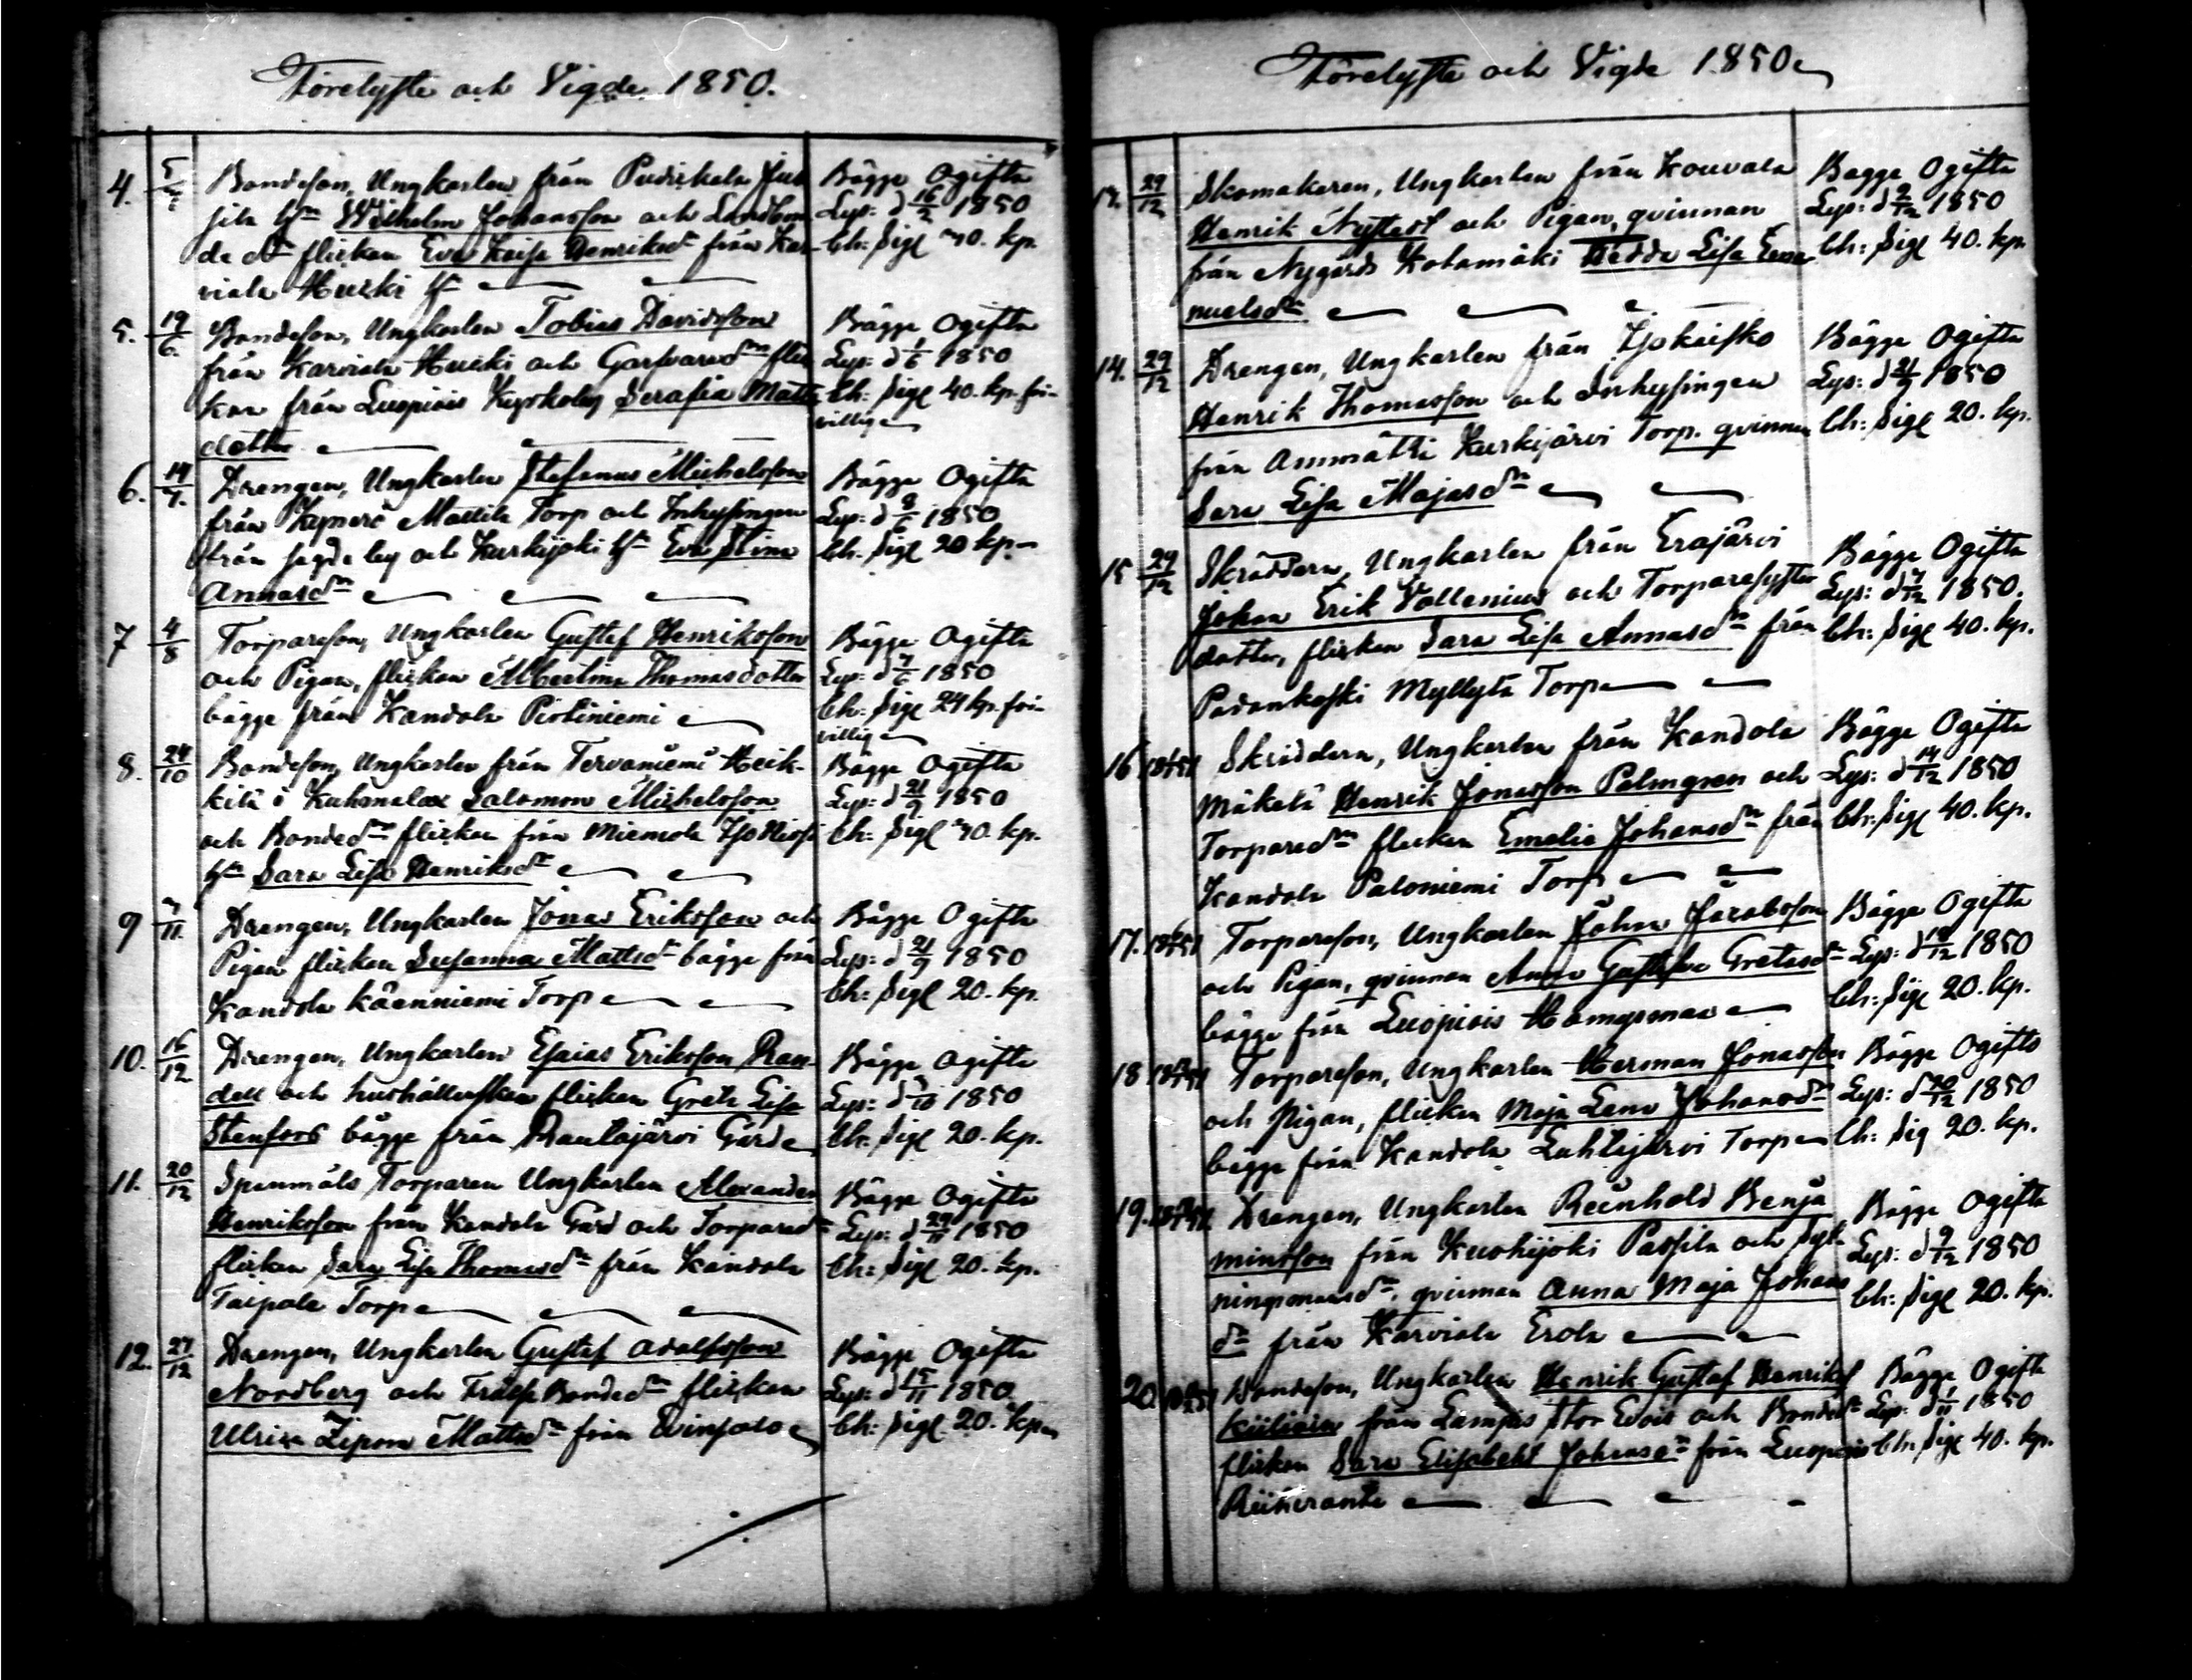 Förelyste och Vigde 1850.
4. 5/4 Bondeson, Ungkarlen från Puduskala Jus
sila hn Wilhelm Johansson och Landbon
de dn flickan Eva Kaisa Henriksdr från Kar
viala Hurki hn
Bägge Ogifta
Lys: d 16/2 1850
Ch: Sigl 40. kp.
5. 19/6 Bondeson, Ungkarlen Tobias Davidsson
från Karviala Hurki och Garfvaredtr flic
kan från Luopiois Kyrkoby Serafia Matts
dotter
Bägge Ogifta
Lys: d 1/6 1850
Ch: Sigl 40. kp. fri-
villig
6. 14/7 Drengen, Ungkarlen Stefanus Michelsson
från Kynerö Mattila Torp och Inhysingen
från och Kurkijoki hn Eva Stina
Annasdr
Bägge Ogifta
Lys: d 8/6 1850
Ch. Sigl 20 kp
7 4/8 Torpareson, Ungkarlen Gustaf Henriksson
och Pigan, flickan Albertina Thomasdotter
bägge från Kandola Pirtiniemi
Bägge Ogifta
Lys: d 7/6 1850
Ch: Sigl 24 kp. fri-
villig
8. 24/10 Bondeson, Ungkarlen från Tervaniemi Heik-
kilä i Kuhmalax Salomon Michelsson
och Bondedtr flickan från Miemola
hn Sara Lisa Henriksdr
Bägge Ogifta
Lys: d 21/9 1850
Ch: Sigl 40. kp.
9 7/11. Drengen, Ungkarlen Jonas Eriksson och
Pigan flickan Susanna Mattsdr bägge från
Kandola Käenniemi Torp
Bägge Ogifta
Lys: d 21/9 1850
Ch: Sigl 20. kp.
10. 16/12 Drengen, Ungkarlen Esaias Eriksson Ran-
dell och hushållerskan flickan Greta Lisa
Stenfors bägge från Rautajärvi Gård
Bägge Ogifta
Lys: d 5/10 1850
Ch: Sigl 20. kp.
11. 20/12 Spanmåls Torparen Ungkarlen Alexander
Henriksson från Kandola Gård och Torpared
flickan Sara Lisa Thomasdr från Kandola
Taipale Torp
Bägge Ogifta
Lys: d 29/11 1850
Ch: Sigl 20. kp.
12. 27/12 Drengen, Ungkarlen Gustaf Adolfsson
Nordberg och Frälse Bondedtr flickan
Ulrica Zipora Mattsdr från Evinsalo
Bägge Ogifta
Lys: d 15/11 1850
Ch: Sigl. 20. kp.
Förelyste och Vigde 1850
13. 29/12 Skomakaren, Ungkarlen från Kouvala
Henrik Nystedt och Pigan, qvinnan
från Nygårds Kotamäki Hedda Lisa Ema
nuelsdr
Bägge Ogifta
Lys: d 2/12 1850
Ch: Sigl 40. kp.
14. 29/12 Drengen, Ungkarlen från
Henrik Thomasson och Inhysingen
från Ammätti Kurkijärvi Torp. qvinnan
Sara Lisa Majasdr
Bägge Ogifta
Lys: d 21/9 1850
Ch: Sigl 20. kp.
15 29/12 Skräddern, Ungkarlen från Erajärvi
Johan Erik Vallenius och Torparesyster
dotter, flickan Sara Lisa Annasdr från
Padankoski Myllytä Torp
Bägge Ogifta
Lys: d 7/12 1850.
Ch: Sigl 40. kp.
16 Skräddern, Ungkarlen från Kandola
Mäkelä Henrik Jonasson Palmgren och
Torparedtr flickan Emelia Johansdr från
Kandola Paloniemi Torp
Bägge Ogifta
Lys: d 14/12 1850
Ch: Sigl 40. kp.
17. Torpareson, Ungkarlen Johan Jacobsson
och Pigan, qvinnan Anna Gustafva Gretasdr
bägge från Luopiois
Bägge Ogifta
Lys: d 18/12 1850
Ch: Sigl 20. kp.
18 Torpareson, Ungkarlen Herman Jonasson
och Pigan, flickan Maja Lena Johansdr
bägge från Kandola Luhtijärvi Torp
Bägge Ogifta
Lys: d 20/12 1850
Ch: Sig 20. kp.
19. Drengen, Ungkarlen Reinhold Benja
minsson från Kuohijoki Passila och Syt-
ningsmansdr, qvinnan Anna Maja Johans
dr från Karviala Erola
Bägge Ogifta
Lys: d 9/12 1850
Ch: Sigl 20. kp.
20. Bondeson, Ungkarlen Henrik Gustaf Henriks
från Lampis Stor Evois och Bondedr
flickan Sara Elisabeht Johansdr från Luopiois
Riikeranta
Bägge Ogifta
Lys: d 1/11 1850
Ch. Sigl 40. kp.